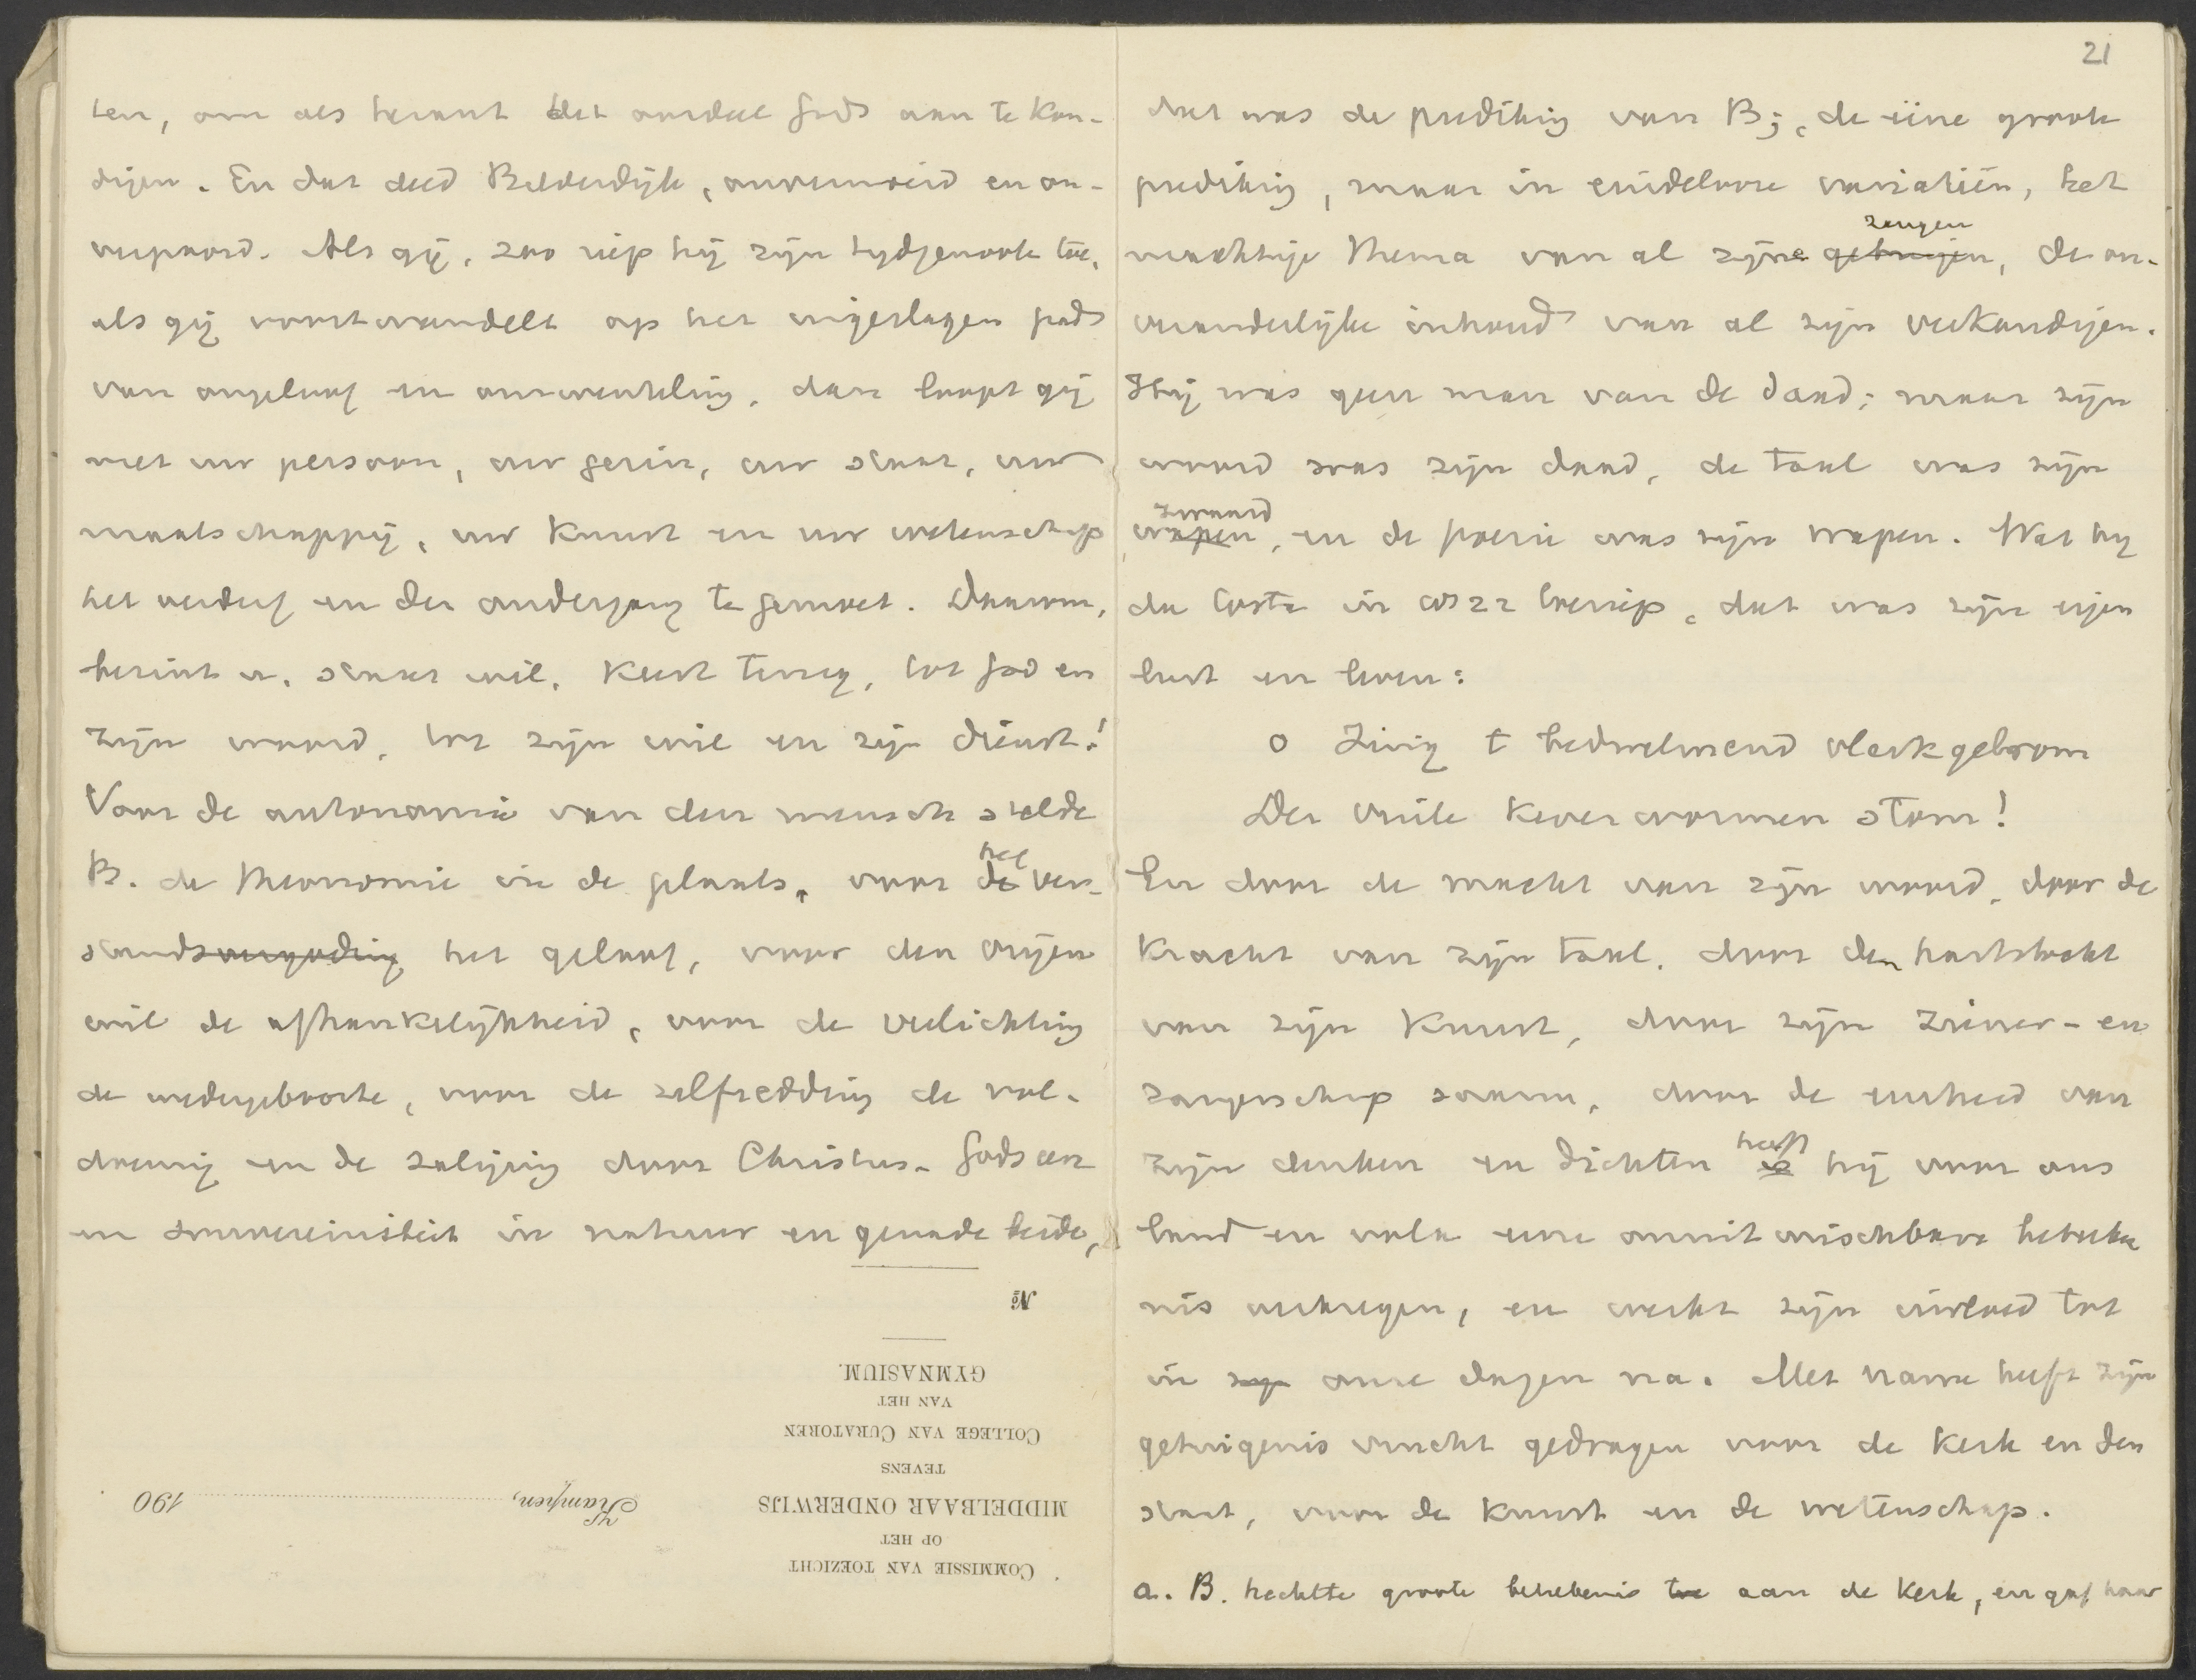 ten, om als heraut het oordeel Gods aan te kon-
digen. En dat deed Bilderdijk, onvermoeid en on-
verpoosd. Als gij, zoo riep hij zijn tijdgenooten toe,
als gij voortwandelt op het ingeslagen pad
van ongeloof en omwenteling, dan loopt gij
met uw persoon, uw gezin, uw staat, uw
maatschappij, uw kunst en uw wetenschap
het verderf en den ondergang te gemoet. Daarom,
bezint u, staat stil, keert terug, tot God en
zijn woord, tot zijn wil en zijn dienst!
Voor de autonomie van den mensch stelde
B. de theonomie in de plaats, voor de het ver-
standsvergoding het geloof, voor den vrijen
wil de afhankelijkheid, voor de verlichting
de wedergeboorte, voor de zelfredding de vol-
doening en de zaliging door Christus. Gods eer
en souvereiniteit in natuur en genade beide,
No
GYMNASIUM.
VAN HET
COLLEGE VAN CURATOREN
TEVENS
MIDDELBAAR ONDERWIJS
OP HET
COMMISSIE VAN TOEZICHT
Kampen, 190
21
dat was de prediking van B; de ééne groote
prediking, maar in eindelooze variatiën, het
machtige thema van al zijne getuigen, zangen de on-
veranderlijke inhoud van al zijn verkondigen.
Hij was geen man van de daad; maar zijn
woord was zijn daad, de taal was zijn
wapen, zwaard en de poezie was zijn wapen. Wat hij
da Costa in 1822 toeriep, dat was zijn eigen
lust en leven:
o Zing t bedwelmend vlerkgebrom
Der vuile keverwormen stom!
En door de macht van zijn woord, door de
kracht van zijn taal, door den hartstocht
van zijn kunst, door zijn ziener- en
zangerschap samen, door de eenheid van
zijn denken en dichten is heeft hij voor ons
land en volk eene onuitwischbare beteeke
nis verkregen, en werkt zijn invloed tot
in zijn onze dagen na. Met name heeft zijn
getuigenis vrucht gedragen voor de kerk en den
staat, voor de kunst en de wetenschap.
a. B. hechtte groote beteekenis toe aan de kerk, en gaf haar